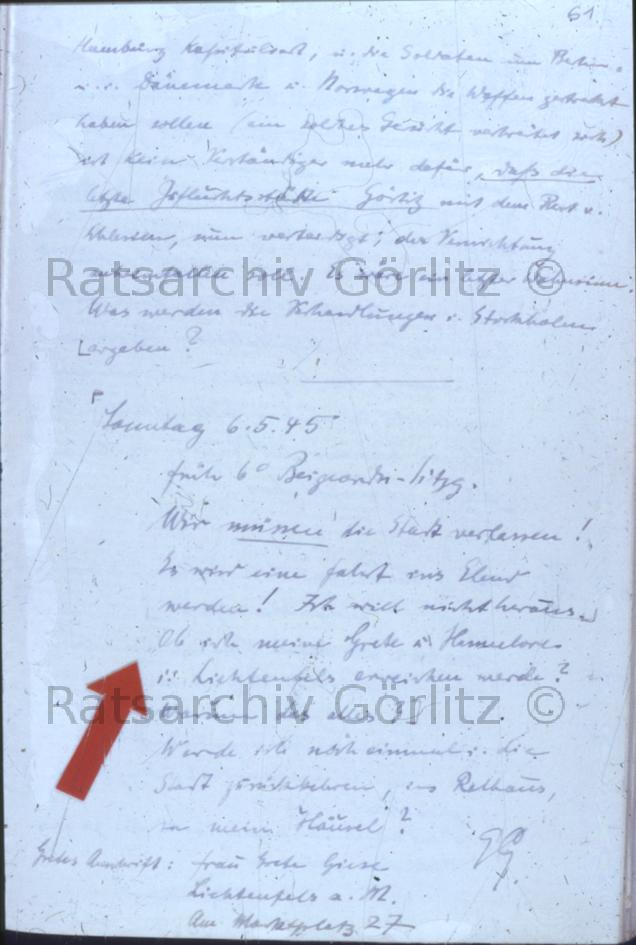 61
Hamburg kapituliert, u. die Soldaten
u. i. Dänemark u. Norwegen die Waffen gestreckt
haben sollen (ein solches Gerücht verbreitet sich)
ist kein Verständiger mehr dafür, daß die
letzte Zufluchtsstätte Görlitz mit dem Rest v.
Schlesien, nun verteidigt, der Vernichtung
soll. Es wäre ein
Ratsarchiv Görlitz ©
Was werden die Verhandlungen i. Stockholm
ergeben?
Sonntag 6.5.45
früh 6° Beigeordn.-Sitzg.
Wir müssen die Stadt verlassen!
Es wird eine Fahrt ins Elend
werden! Ich will nicht heraus.
Ob ich meine Grete u. Hannelore
i. Lichtenfels erreichen werde?
Warum das alles??
Ratsarchiv Görlitz ©
Werde ich noch einmal i. die
Stadt zurückkehren, ins Rathaus,
in mein Häusel?
Gretes Anschrift: Frau Grete Giese
Lichtenfels a. M.
Am Marktplatz 27